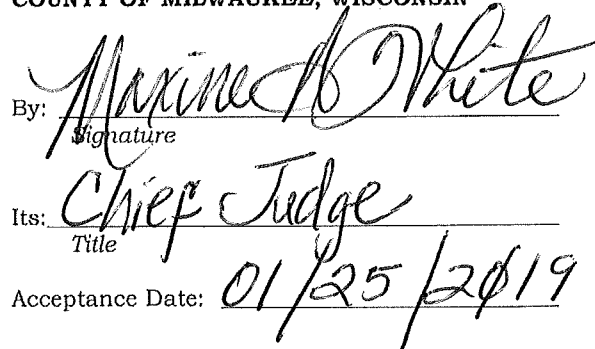 COUNTY OF MILWAUKEE, WISCONSIN
By: Maxine A White
Signature
Its: Chief Judge
Title
Acceptance Date: 01/25/2019